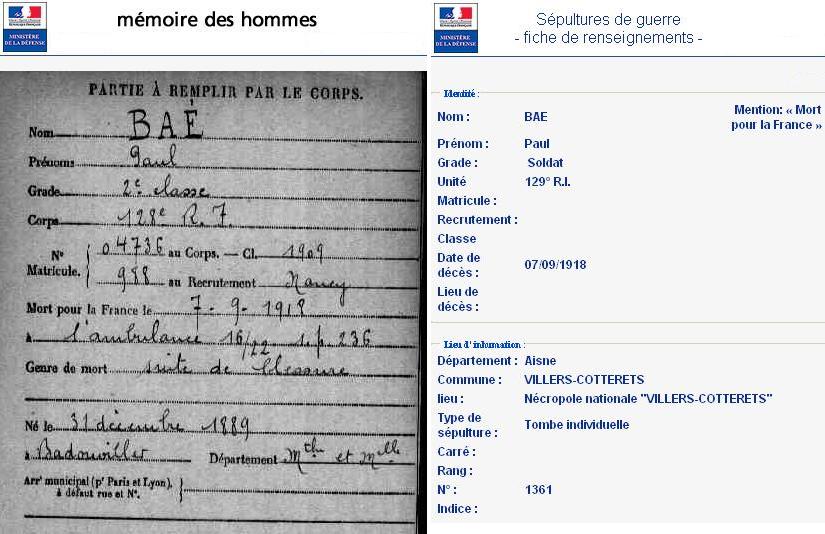 MINISTÈRE
DE LA DÉFENSE
mémoire des hommes
PARTIE À REMPLIR PAR LE CORPS.
Nom BAÉ
Prénoms Paul
Grade 2e classe
Corps 128e R. I.
No Matricule. { 04736 au Corps. — Cl. 1909
988 au Recrutement Nancy
Mort pour la France le 7 - 9 - 1918
à l'ambulance 16/22 s.p. 236
Genre de mort suite de blessure
Né le 31 décembre 1889
à Badonviller Département Mthe et Mlle
Arrt municipal (pr Paris et Lyon), à défaut rue et No.
MINISTÈRE
DE LA DÉFENSE
Sépultures de guerre
- fiche de renseignements -
Identité :
Nom : BAE
Mention: « Mort
pour la France »
Prénom : Paul
Grade : Soldat
Unité 129° R.I.
Matricule :
Recrutement :
Classe
Date de décès : 07/09/1918
Lieu de décès :
Lieu d'inhumation :
Département : Aisne
Commune : VILLERS-COTTERETS
lieu : Nécropole nationale "VILLERS-COTTERETS"
Type de sépulture : Tombe individuelle
Carré :
Rang :
N° : 1361
Indice :